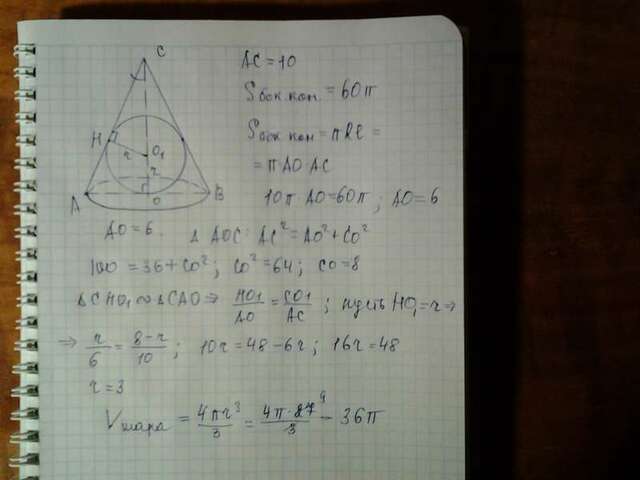 C
H
O₁
r
r
A
O
B
AC = 10
Sбок кон. = 60π
Sбок кон = πRL =
= π·AO·AC
10π·AO = 60π ; AO = 6
AO = 6. Δ AOC: AC² = AO² + CO²
100 = 36 + CO² ; CO² = 64 ; CO = 8
ΔCHO₁ ∾ ΔCAO ⇒ HO₁/AO = CO₁/AC ; пусть HO₁ = r ⇒
⇒ r/6 = (8-r)/10 ; 10r = 48 - 6r ; 16r = 48
r = 3
Vшара = 4πr³/3 = 4π·27/3 9 - 36π